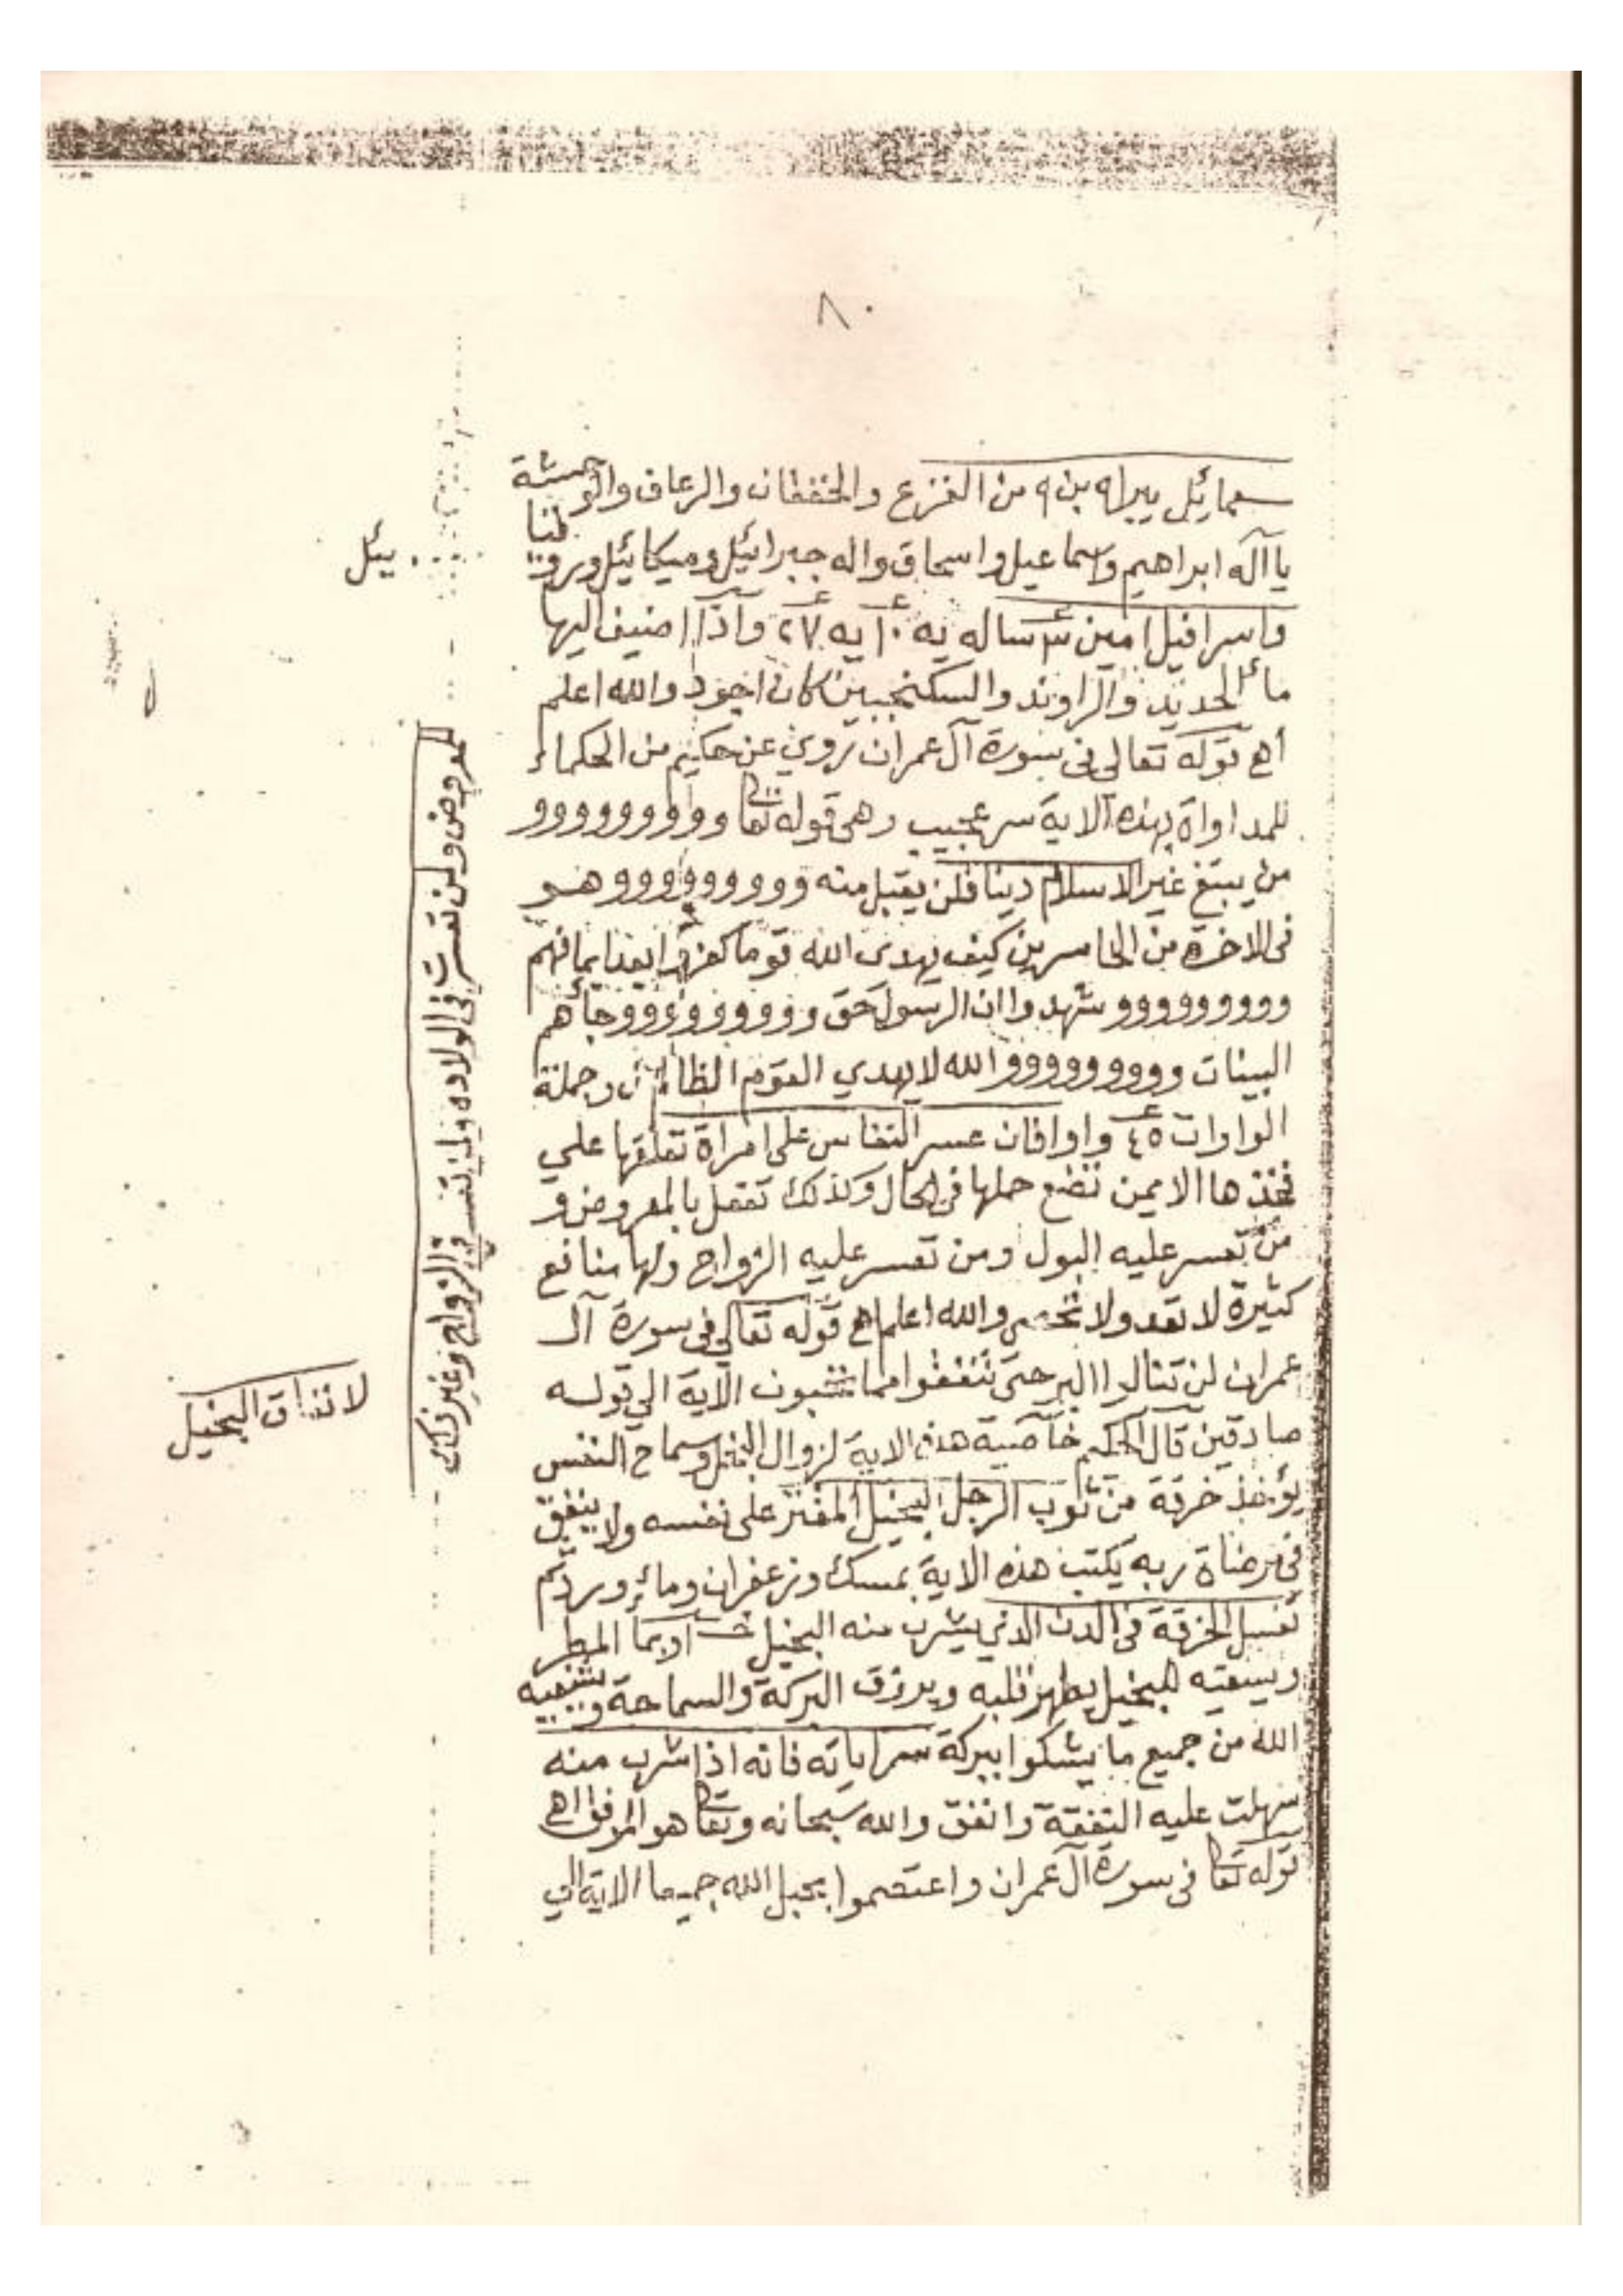 ٨٠
سعمائيل يبراه بن ٩ من الفزع والخفقان والرعاف والوحشة
يا آله ابراهيم واسماعيل واسحاق واله جبرائيل وميكائيل
يئل
واسرافيل امين يه ١٠ يه ٢٧ واذا اضيف اليها
مائ الحديد والراوند والسكنجبين كان اجود والله اعلم
أهـ قوله تعالى فى سورة آل عمران تروي عن حكيم من الحكماء
للمداواة بهذه الاية سر عجيب وهى قوله تعا وووووووووو
من يبتغ غير الاسلام دينا فلن يقبل منه وووووووووو هو
فى الاخرة من الخاسرين كيف يهدى الله قوما كفروا بعد ايمانهم
وووووووووو شهدوا ان الرسول حق وووووووووو جائهم
البينات وووووووووو الله لا يهدي القوم الظالمين وجملة
الواوات ٤٥ واوا فان عسر النفاس على امراة تعلقها علي
فخذها الايمن تضع حملها فى الحال وكذلك تفعل بالمعروض و
من تعسر عليه البول ومن تعسر عليه الزواج ولها منافع
كثيرة لا تعد ولا تحصى والله اعلم اهـ قوله تعالي فى سورة آل
عمران لن تنالوا البر حتى تنفقوا مما تحبون الآية الي قوله
صادقين قال الحكيم خاصية هذه الاية لزوال البخل وسماح النفس
يؤخذ خرقة من ثوب الرجل البخيل المقتر على نفسه ولا ينفق
فى مرضاة ربه يكتب هذه الاية بمسك وزعفران ومائ ورد ثم
تغسل الخرقة فى الدن الذي يشرب منه البخيل او بما المطر
ويسقيه للبخيل يطهر قلبه ويرزق البركة والسماحة ويشفيه
الله من جميع ما يشكوا ببركة سر اياته فانه اذا شرب منه
سهلت عليه النفقة وانفق والله سبحانه وتعا هو الموفق اهـ
قوله تعا فى سورة آل عمران واعتصموا بحبل الله جميعا الاية الي
للمعروض ولمن تعسرت فى الولاده ولمن تعسر فى الزواج وغير ذلك
لانفاق البخيل